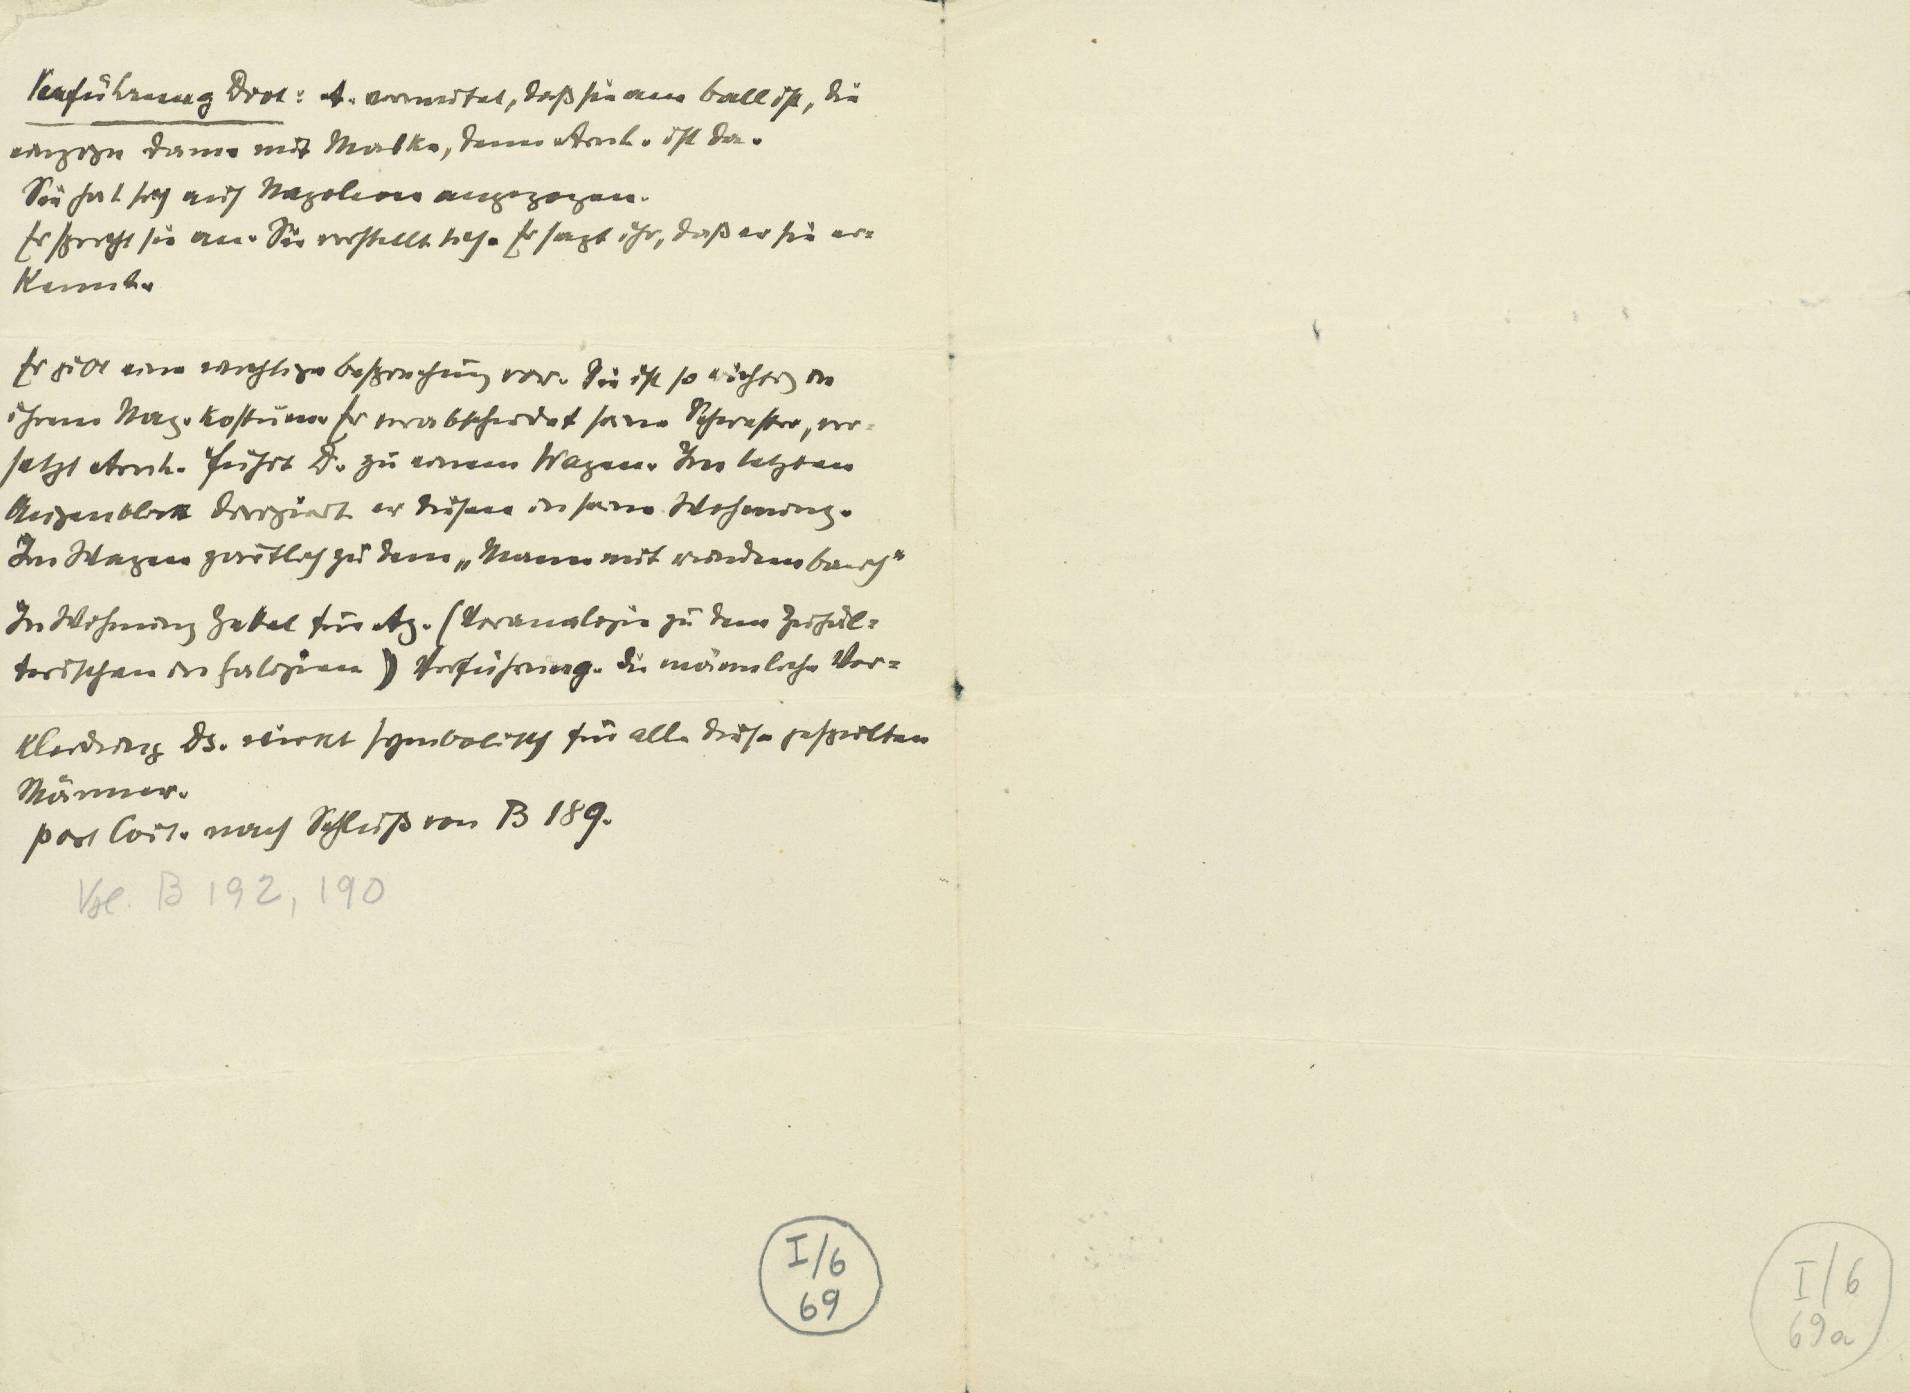 Verführung Drot: A. vermutet, daß sie am Ball ist, die
einzige Dame mit Maske, denn Arnh. ist da.
Sie hat sich als Napoleon angezogen.
Er spricht sie an. Sie verstellt sich. Er sagt ihr, daß er sie er=
kennt.
Er gibt eine wichtige Besprechung vor. Sie ist so in
ihrem Nap. Kostüm. Er verabschiedet seine Schwester, ver=
setzt Arnh. führt D. zu einem Wagen. Im letzten
Augenblick dirigiert er diesen in seine Wohnung.
Im Wagen zärtlich zu dem „Mann mit rundem Bauch"
In Wohnung für Ag. (Voranalogie zu dem Zuhäl=
terischen in Galizien) Verführung. Die männliche Ver=
kleidung Ds. wirkt symbolisch für alle diese gespielten
Männer.
post Coit. nach Schluß von B 189.
Vgl. B 192, 190
I/6
69
I/6
69a